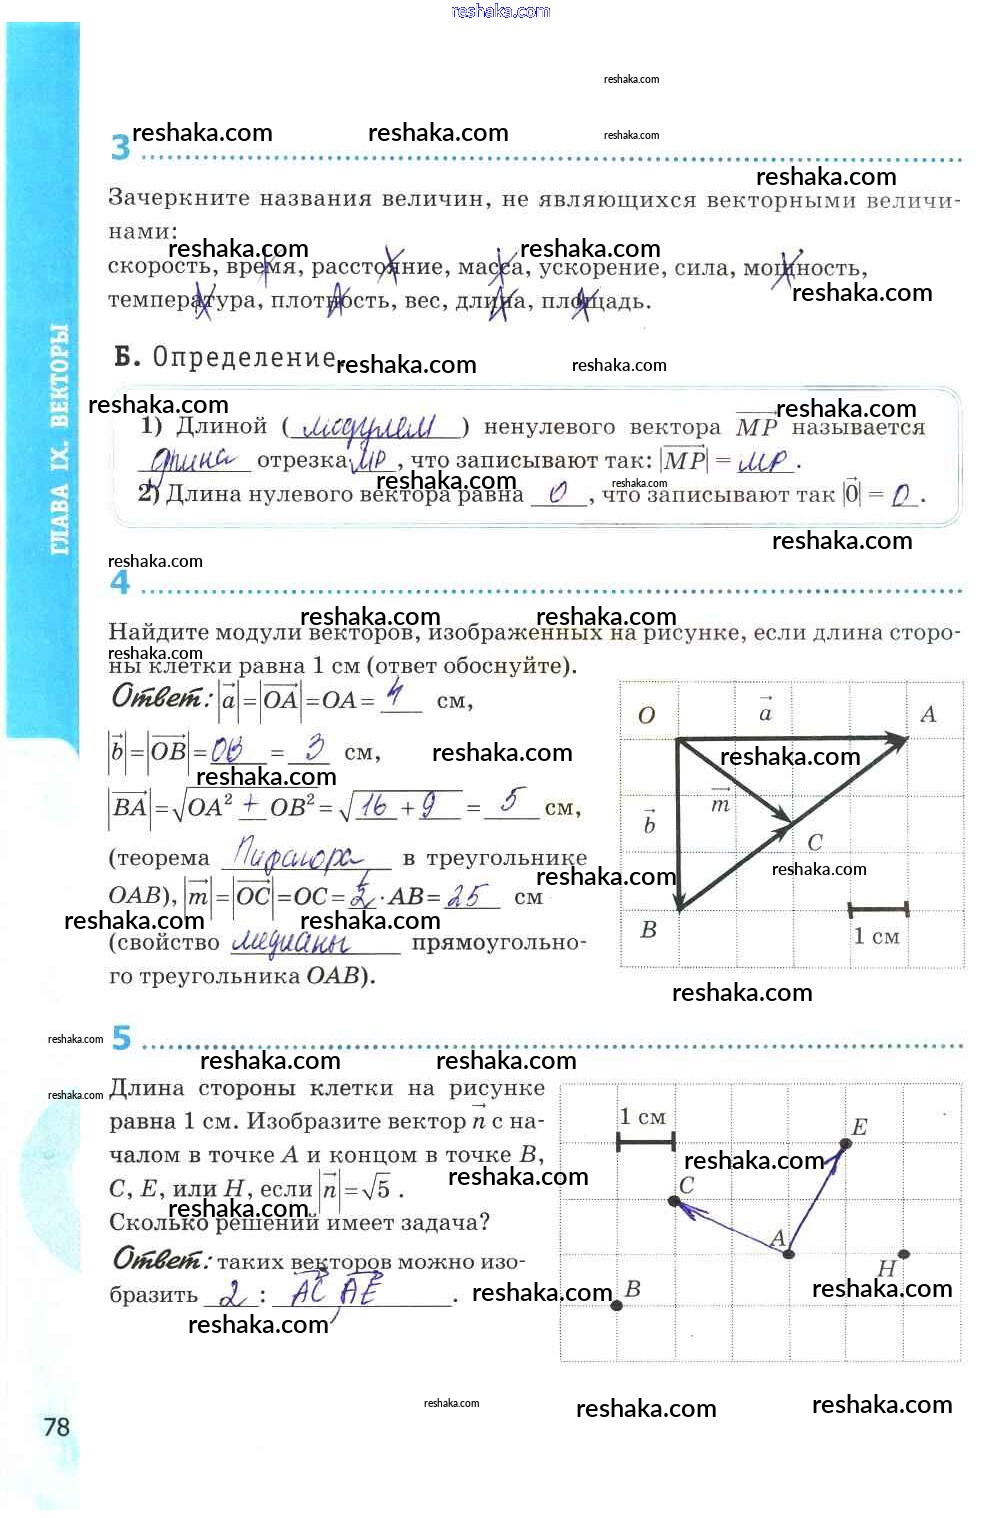 reshaka.com
reshaka.com
3 reshaka.com reshaka.com reshaka.com
reshaka.com
Зачеркните названия величин, не являющихся векторными величи-
нами:
reshaka.com reshaka.com
скорость, время, расстояние, масса, ускорение, сила, мощность,
reshaka.com
температура, плотность, вес, длина, площадь.
Б. Определение.
reshaka.com reshaka.com
reshaka.com reshaka.com
1) Длиной ( модулем ) ненулевого вектора MP называется
длина отрезка MP, что записывают так: |MP| = MP.
reshaka.com reshaka.com
2) Длина нулевого вектора равна 0, что записывают так |0| = 0.
reshaka.com
reshaka.com
4
reshaka.com reshaka.com
Найдите модули векторов, изображенных на рисунке, если длина сторо-
reshaka.com
ны клетки равна 1 см (ответ обоснуйте).
Ответ: |a| = |OA| = OA = 4 см,
|b| = |OB| = OB = 3 см,
reshaka.com reshaka.com
|BA| = √OA² + OB² = √16 + 9 = 5 см,
(теорема Пифагора в треугольнике
reshaka.com reshaka.com
OAB), |m| = |OC| = OC = 1/2 · AB = 25 см
reshaka.com reshaka.com
(свойство медианы прямоугольно-
го треугольника OAB).
O a A
reshaka.com
b m
C
B 1 см
reshaka.com
5
reshaka.com
reshaka.com reshaka.com
reshaka.com
Длина стороны клетки на рисунке
равна 1 см. Изобразите вектор n с на-
чалом в точке A и концом в точке B,
reshaka.com
C, E, или H, если |n| = √5 .
reshaka.com
Сколько решений имеет задача?
Ответ: таких векторов можно изо-
бразить 2 : AC, AE .
reshaka.com reshaka.com
1 см E
reshaka.com
C
A
H
reshaka.com
B
reshaka.com
reshaka.com reshaka.com
78
ГЛАВА IX. ВЕКТОРЫ